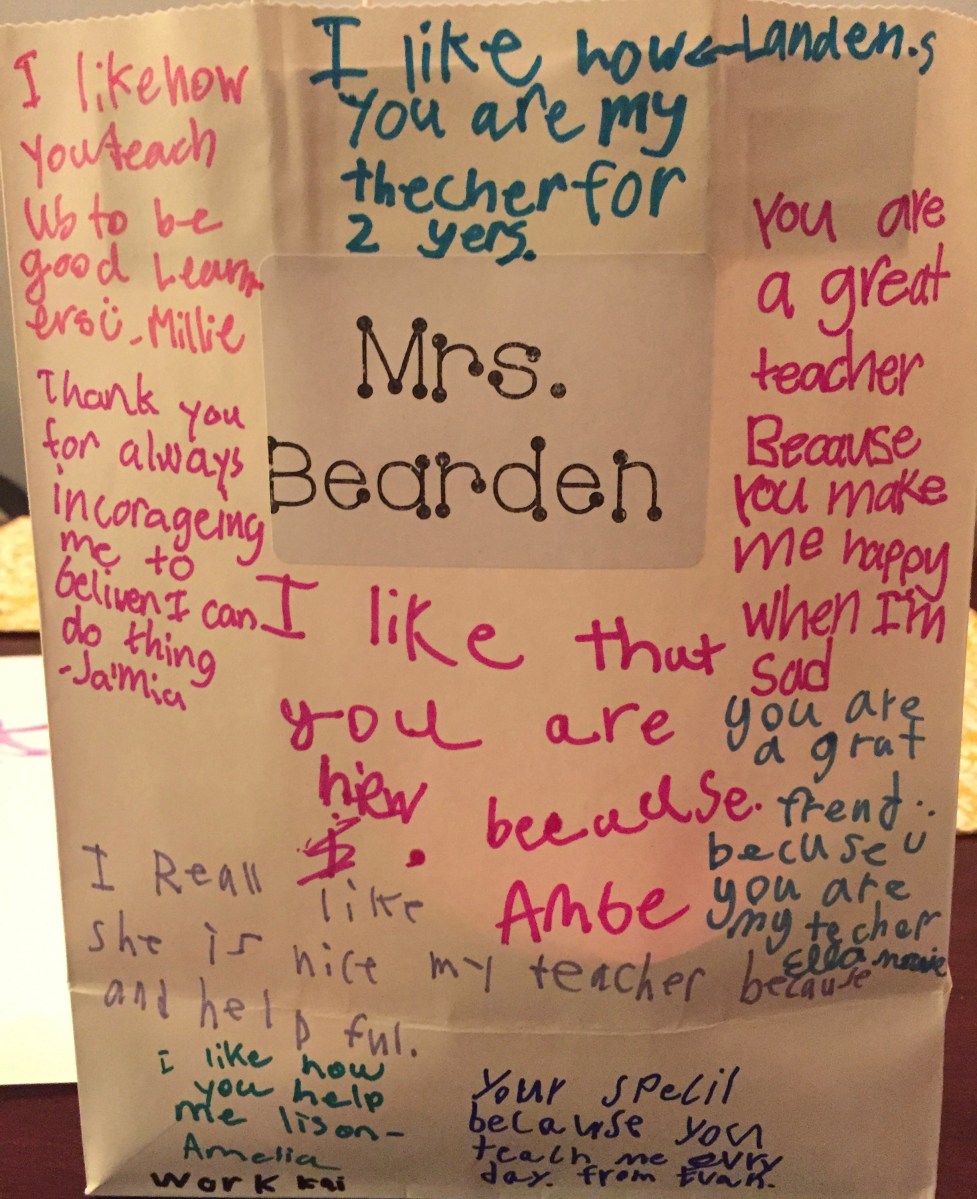 I like how
you teach
us to be
good Learn
ers ü - Millie
I like how ← Landen.s
you are my
thecher for
2 yers.
You are
a great
teacher
Because
you make
me happy
when I'm
sad
Mrs.
Bearden
Thank you
for always
incorageing
me to
beliven I can
do thing
-Ja'mia
I like that
you are
because.
Ambe
you are
a grat
frend..
becuse u
you are
my techer
Ella marie
I Reall like
she is nice my teacher because
and help ful.
i like how
you help
me lison-
Amelia
work kai
Your spelil
because you
teach me evry
day. from Evan.